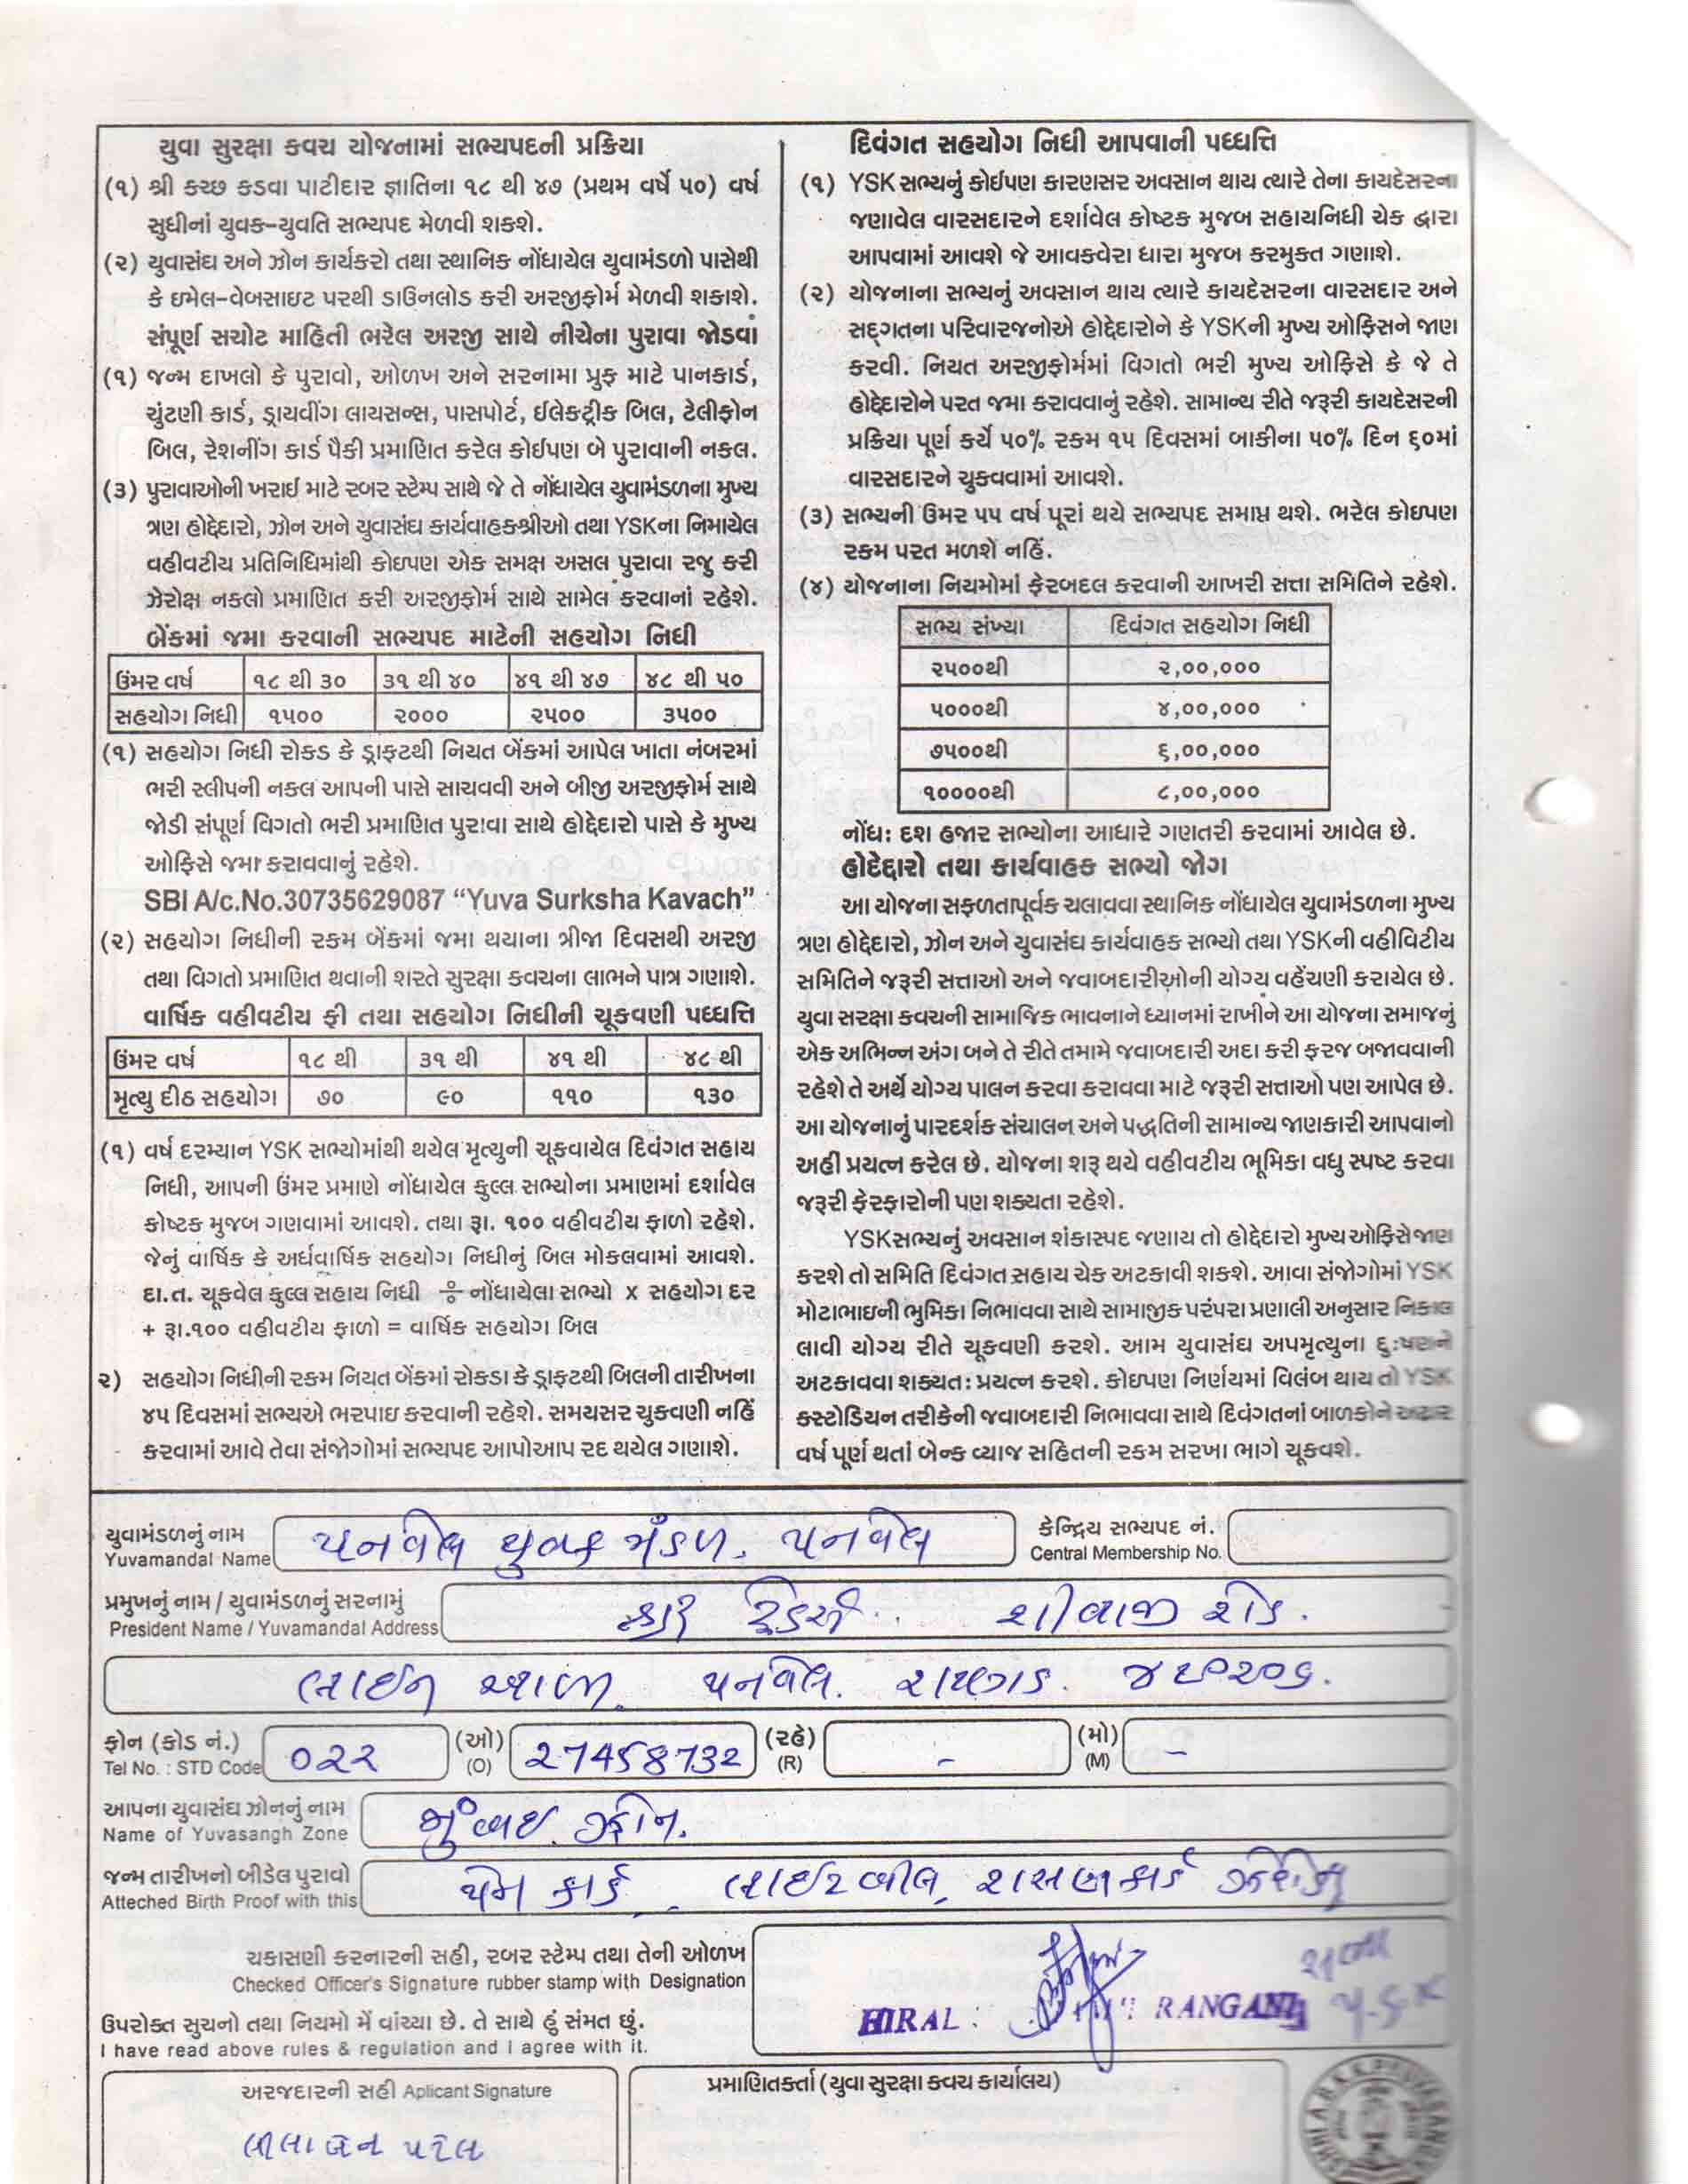 યુવા સુરક્ષા કવચ યોજનામાં સભ્યપદની પ્રક્રિયા
(૧) શ્રી કચ્છ કડવા પાટીદાર જ્ઞાતિના ૧૮ થી ૪૭ (પ્રથમ વર્ષે ૫૦) વર્ષ
સુધીનાં યુવક-યુવતિ સભ્યપદ મેળવી શકશે.
(૨) યુવાસંઘ અને ઝોન કાર્યકરો તથા સ્થાનિક નોંધાયેલ યુવામંડળો પાસેથી
કે ઇમેલ-વેબસાઇટ પરથી ડાઉનલોડ કરી અરજીફોર્મ મેળવી શકાશે.
સંપૂર્ણ સચોટ માહિતી ભરેલ અરજી સાથે નીચેના પુરાવા જોડવા
(૧) જન્મ દાખલો કે પુરાવો, ઓળખ અને સરનામા પ્રુફ માટે પાનકાર્ડ,
ચુંટણી કાર્ડ, ડ્રાયવીંગ લાયસન્સ, પાસપોર્ટ, ઈલેક્ટ્રીક બિલ, ટેલીફોન
બિલ, રેશનીંગ કાર્ડ પૈકી પ્રમાણિત કરેલ કોઈપણ બે પુરાવાની નકલ.
(૩) પુરાવાઓની ખરાઈ માટે રબર સ્ટેમ્પ સાથે જે તે નોંધાયેલ યુવામંડળના મુખ્ય
ત્રણ હોદ્દેદારો, ઝોન અને યુવાસંઘ કાર્યવાહકશ્રીઓ તથા YSKના નિમાયેલ
વહીવટીય પ્રતિનિધિમાંથી કોઇપણ એક સમક્ષ અસલ પુરાવા રજુ કરી
ઝેરોક્ષ નકલો પ્રમાણિત કરી અરજીફોર્મ સાથે સામેલ કરવાનાં રહેશે.
બેંકમાં જમા કરવાની સભ્યપદ માટેની સહયોગ નિધી
ઉંમર વર્ષ ૧૮ થી ૩૦ ૩૧ થી ૪૦ ૪૧ થી ૪૭ ૪૮ થી ૫૦
સહયોગ નિધી ૧૫૦૦ ૨૦૦૦ ૨૫૦૦ ૩૫૦૦
(૧) સહયોગ નિધી રોકડ કે ડ્રાફટથી નિયત બેંકમાં આપેલ ખાતા નંબરમાં
ભરી સ્લીપની નકલ આપની પાસે સાચવવી અને બીજી અરજીફોર્મ સાથે
જોડી સંપૂર્ણ વિગતો ભરી પ્રમાણિત પુરાવા સાથે હોદ્દેદારો પાસે કે મુખ્ય
ઓફિસે જમા કરાવવાનું રહેશે.
SBI A/c.No.30735629087 “Yuva Surksha Kavach”
(૨) સહયોગ નિધીની રકમ બેંકમાં જમા થયાના ત્રીજા દિવસથી અરજી
તથા વિગતો પ્રમાણિત થવાની શરતે સુરક્ષા કવચના લાભને પાત્ર ગણાશે.
વાર્ષિક વહીવટીય ફી તથા સહયોગ નિધીની ચૂકવણી પધ્ધત્તિ
ઉંમર વર્ષ ૧૮ થી ૩૧ થી ૪૧ થી ૪૮ થી
મૃત્યુ દીઠ સહયોગ ૭૦ ૯૦ ૧૧૦ ૧૩૦
(૧) વર્ષ દરમ્યાન YSK સભ્યોમાંથી થયેલ મૃત્યુની ચૂકવાયેલ દિવંગત સહાય
નિધી, આપની ઉંમર પ્રમાણે નોંધાયેલ કુલ્લ સભ્યોના પ્રમાણમાં દર્શાવેલ
કોષ્ટક મુજબ ગણવામાં આવશે. તથા રૂા. ૧૦૦ વહીવટીય ફાળો રહેશે.
જેનું વાર્ષિક કે અર્ધવાર્ષિક સહયોગ નિધીનું બિલ મોકલવામાં આવશે.
દા.ત. ચૂકવેલ કુલ્લ સહાય નિધી ÷ નોંધાયેલા સભ્યો x સહયોગ દર
+ રૂા.૧૦૦ વહીવટીય ફાળો = વાર્ષિક સહયોગ બિલ
૨) સહયોગ નિધીની રકમ નિયત બેંકમાં રોકડા કે ડ્રાફટથી બિલની તારીખના
૪૫ દિવસમાં સભ્યએ ભરપાઇ કરવાની રહેશે. સમયસર ચુકવણી નહિં
કરવામાં આવે તેવા સંજોગોમાં સભ્યપદ આપોઆપ રદ થયેલ ગણાશે.
દિવંગત સહયોગ નિધી આપવાની પધ્ધત્તિ
(૧) YSK સભ્યનું કોઈપણ કારણસર અવસાન થાય ત્યારે તેના કાયદેસરના
જણાવેલ વારસદારને દર્શાવેલ કોષ્ટક મુજબ સહાયનિધી ચેક દ્વારા
આપવામાં આવશે જે આવકવેરા ધારા મુજબ કરમુક્ત ગણાશે.
(૨) યોજનાના સભ્યનું અવસાન થાય ત્યારે કાયદેસરના વારસદાર અને
સદ્ગતના પરિવારજનોએ હોદ્દેદારોને કે YSKની મુખ્ય ઓફિસને જાણ
કરવી. નિયત અરજીફોર્મમાં વિગતો ભરી મુખ્ય ઓફિસે કે જે તે
હોદ્દેદારોને પરત જમા કરાવવાનું રહેશે. સામાન્ય રીતે જરૂરી કાયદેસરની
પ્રક્રિયા પૂર્ણ કર્યે ૫૦% રકમ ૧૫ દિવસમાં બાકીના ૫૦% દિન ૬૦માં
વારસદારને ચુકવવામાં આવશે.
(૩) સભ્યની ઉમર ૫૫ વર્ષ પૂરાં થયે સભ્યપદ સમાપ્ત થશે. ભરેલ કોઇપણ
રકમ પરત મળશે નહિં.
(૪) યોજનાના નિયમોમાં ફેરબદલ કરવાની આખરી સત્તા સમિતિને રહેશે.
સભ્ય સંખ્યા દિવંગત સહયોગ નિધી
૨૫૦૦થી ૨,૦૦,૦૦૦
૫૦૦૦થી ૪,૦૦,૦૦૦
૭૫૦૦થી ૬,૦૦,૦૦૦
૧૦૦૦૦થી ૮,૦૦,૦૦૦
નોંધ: દશ હજાર સભ્યોના આધારે ગણતરી કરવામાં આવેલ છે.
હોદેદારો તથા કાર્યવાહક સભ્યો જોગ
આ યોજના સફળતાપૂર્વક ચલાવવા સ્થાનિક નોંધાયેલ યુવામંડળના મુખ્ય
ત્રણ હોદ્દેદારો, ઝોન અને યુવાસંઘ કાર્યવાહક સભ્યો તથા YSKની વહીવિટીય
સમિતિને જરૂરી સત્તાઓ અને જવાબદારીઓની યોગ્ય વહેંચણી કરાયેલ છે.
યુવા સરક્ષા કવચની સામાજિક ભાવનાને ધ્યાનમાં રાખીને આ યોજના સમાજનું
એક અભિન્ન અંગ બને તે રીતે તમામે જવાબદારી અદા કરી ફરજ બજાવવાની
રહેશે તે અર્થે યોગ્ય પાલન કરવા કરાવવા માટે જરૂરી સત્તાઓ પણ આપેલ છે.
આ યોજનાનું પારદર્શક સંચાલન અને પદ્ધતિની સામાન્ય જાણકારી આપવાનો
અહીં પ્રયત્ન કરેલ છે. યોજના શરૂ થયે વહીવટીય ભૂમિકા વધુ સ્પષ્ટ કરવા
જરૂરી ફેરફારોની પણ શક્યતા રહેશે.
YSKસભ્યનું અવસાન શંકાસ્પદ જણાય તો હોદ્દેદારો મુખ્ય ઓફિસે જાણ
કરશે તો સમિતિ દિવંગત સહાય ચેક અટકાવી શકશે. આવા સંજોગોમાં YSK
મોટાભાઇની ભુમિકા નિભાવવા સાથે સામાજીક પરંપરા પ્રણાલી અનુસાર નિકાલ
લાવી યોગ્ય રીતે ચૂકવણી કરશે. આમ યુવાસંઘ અપમૃત્યુના
અટકાવવા શક્યત: પ્રયત્ન કરશે. કોઇપણ નિર્ણયમાં વિલંબ થાય તો YSK
કસ્ટોડિયન તરીકેની જવાબદારી નિભાવવા સાથે દિવંગતનાં બાળકોને અઢાર
વર્ષ પૂર્ણ થતાં બેન્ક વ્યાજ સહિતની રકમ સરખા ભાગે ચૂકવશે.
યુવામંડળનું નામ પનવેલ યુવક મંડળ. પનવેલ કેન્દ્રિય સભ્યપદ નં.
Yuvamandal Name Central Membership No.
પ્રમુખનું નામ / યુવામંડળનું સરનામું ટ્રેડર્સ શીવાજી રોડ.
President Name / Yuvamandal Address
લાઈન આળી. પનવેલ. રાયગડ. ૪૧૦૨૦૬.
ફોન (કોડ નં.) 022 (ઓ) 27458732 (રહે) - (મો) -
Tel No. : STD Code (O) (R) (M)
આપના યુવાસંઘ ઝોનનું નામ મુંબઈ ઝોન.
Name of Yuvasangh Zone
જન્મ તારીખનો બીડેલ પુરાવો પેન કાર્ડ, લાઈટબીલ, રાસણકાર્ડ
Atteched Birth Proof with this
ચકાસણી કરનારની સહી, રબર સ્ટેમ્પ તથા તેની ઓળખ
Checked Officer's Signature rubber stamp with Designation
HIRAL RANGANI
ઉપરોક્ત સુચનો તથા નિયમો મેં વાંચ્યા છે. તે સાથે હું સંમત છું.
I have read above rules & regulation and I agree with it.
અરજદારની સહી Aplicant Signature
પ્રમાણિતકર્તા (યુવા સુરક્ષા કવચ કાર્યાલય)
લીલાબેન પટેલ